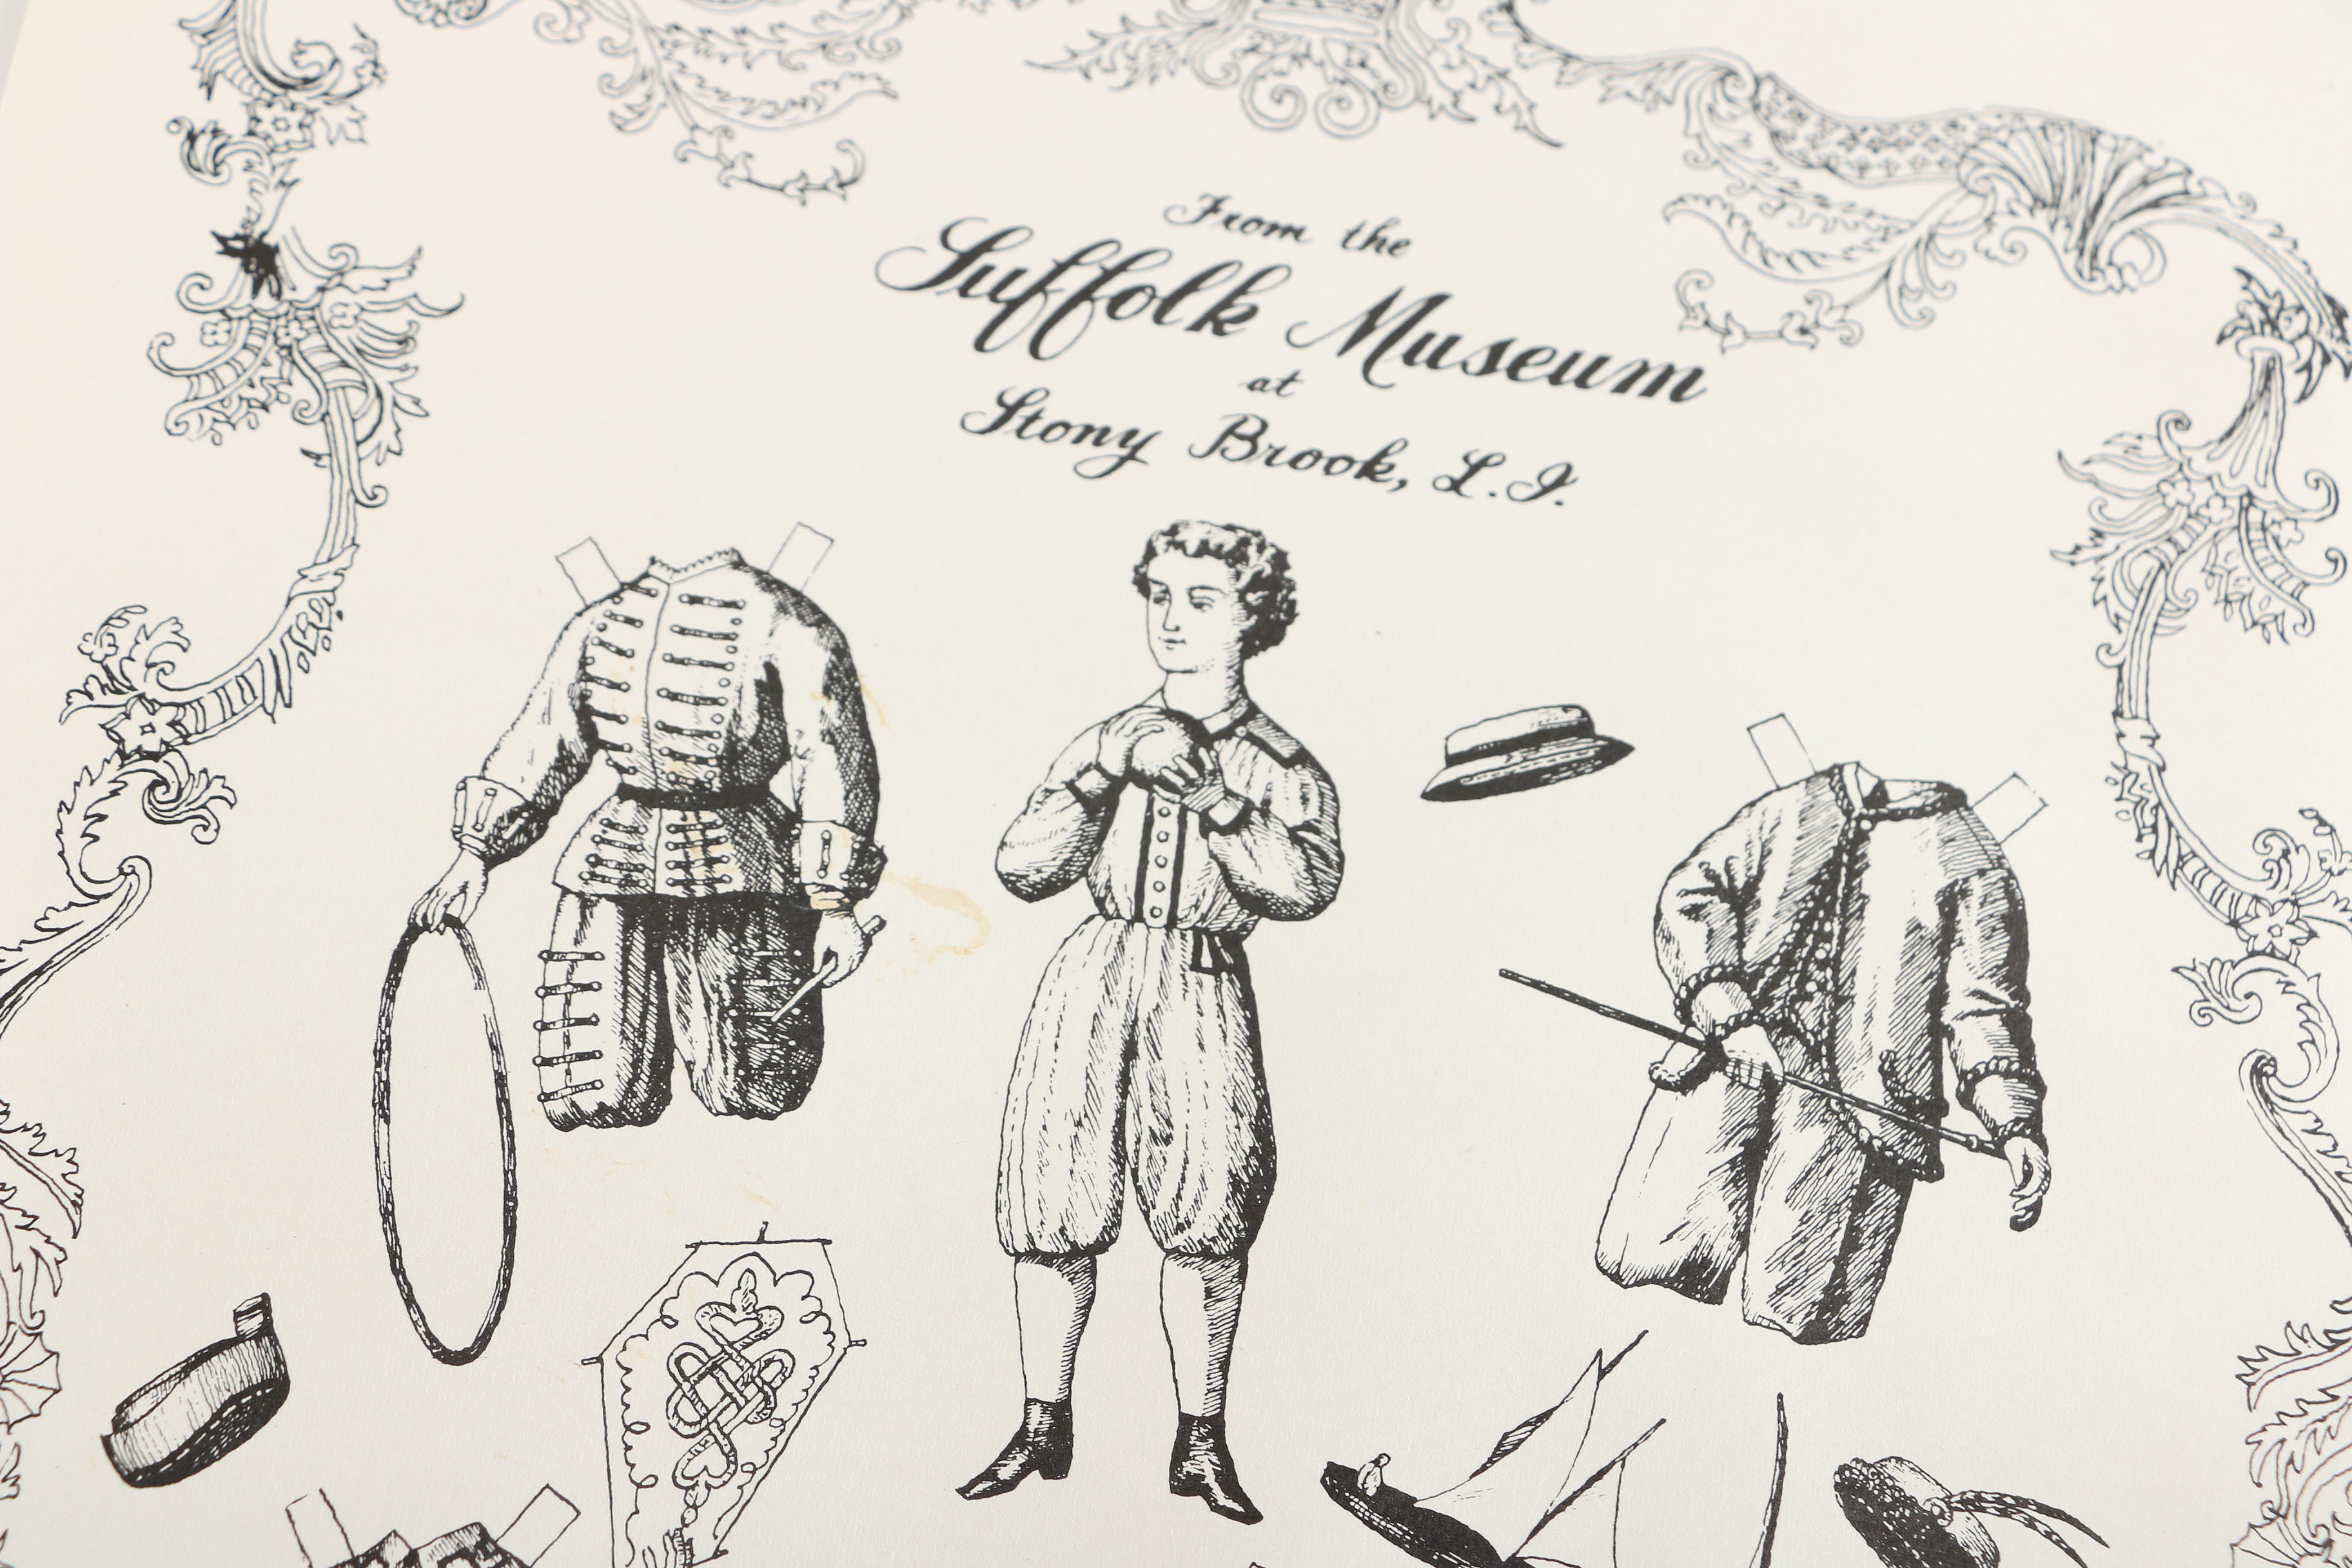 From the
Suffolk Museum
at
Stony Brook, L. I.